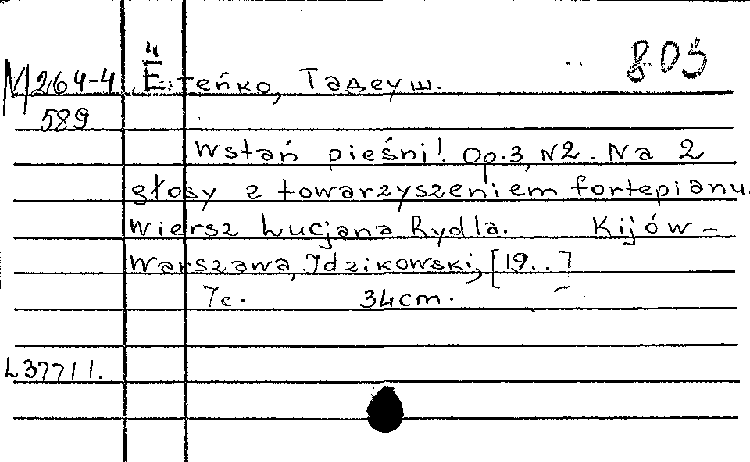 803
М 264-4 Ётейко, Тадеуш.
589
Wstań pieśni! Op.3, N2. Na 2
głosy z towarzyszeniem fortepianu.
Wiersz Lucjana Rydla. Kijów -
Warszawa, Idzikowski, [19..]
7c. 34cm.
L37711.